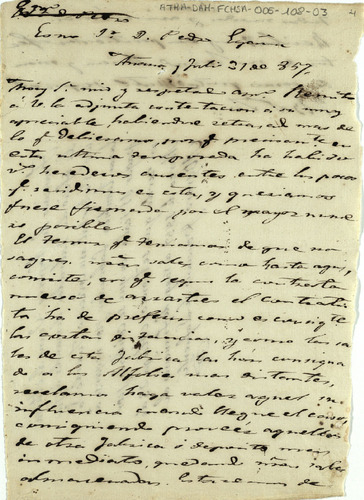 ATHA-DAH-FCHSA-006-108-03
4
Exmo Sr. D. Pedro Egaña
Añana y Julio 21 de 857
Muy Sr. mio y respetado amo: Remito
á V. la adjunta contestacion á su muy
apreciable, habiendo retrasado mas de
lo q. debieramos, por q. precisamente en
esta ultima temporada ha habido
herederos ausentes entre los pocos
q. residimos en esta, y queriamos
fuese firmada por el mayor nume
ro posible.
El temor q. teniamos de que no
saquen sales como hasta aqui,
consiste, en q. segun la contrata
nueva de arrastres el contratis
ta ha de preferir como es consigte
las cortas distancias, y como las sa
les de esta fabrica las han consigna
do á los Alfolies mas distantes,
reclamo haga valer aquel su
influencia cuando llegue el caso,
consiguiendo provéer aquellos
de otra fabrica ó deposito mas
inmediato, quedando sales
almacenadas.